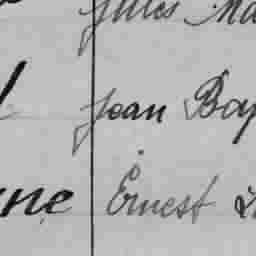 Jules Ma
Jean Bap
ne Ernest